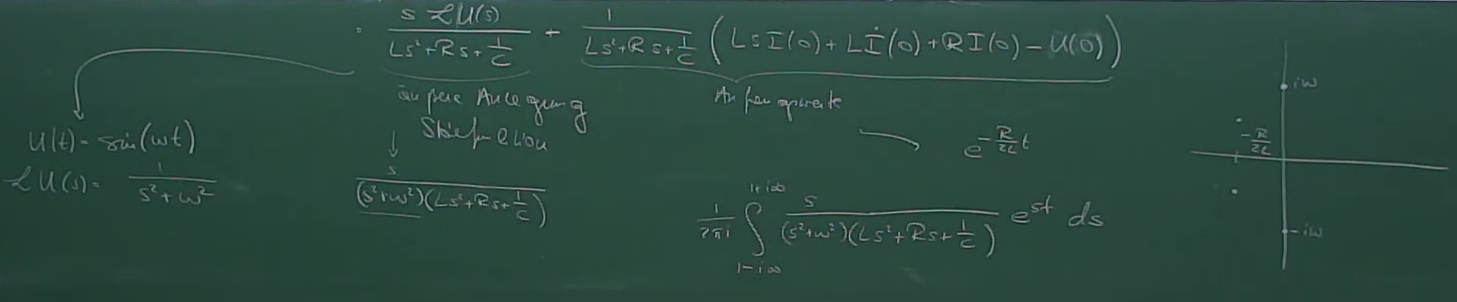 = \frac{s ℒU(s)}{Ls²+Rs+\frac{1}{C}} + \frac{1}{Ls²+Rs+\frac{1}{C}} (LsI(0)+Lİ(0)+RI(0)-U(0))
äußere Anregung
Störfunktion
Anfangswerte
U(t)=sin(ωt)
ℒU(s)= \frac{1}{s²+ω²}
\frac{s}{(s²+ω²)(Ls²+Rs+\frac{1}{C})}
e^{-\frac{R}{2L}t}
\frac{1}{2πi} \int_{1-i∞}^{1+i∞} \frac{s}{(s²+ω²)(Ls²+Rs+\frac{1}{C})} e^{st} ds
iω
-\frac{R}{2L}
-iω